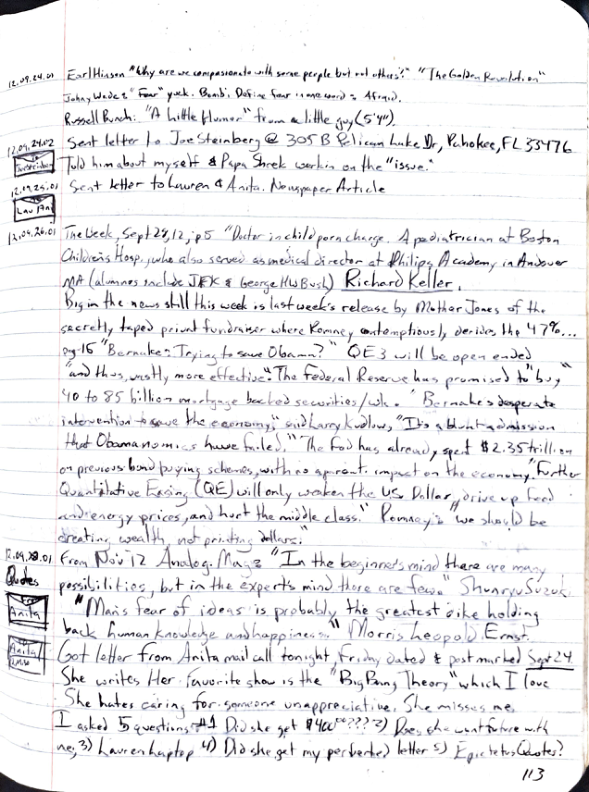 12.09.24.01 Earl Hinson "Why are we compassionate with some people but not others?" "The Golden Revolution"
Johny Wade: "Fear" yuck. Bomb. Define fear in one word = Afraid.
Russell Bunch: "A little Humor" from a little guy (5'4").
12.09.24.02 Sent letter to Joe Steinberg @ 305 B Pelican Lake Dr, Pahokee, FL 33476
Told him about myself & Papa Shrek workin on the "issue."
Sent letter to Lauren & Anita. Newspaper Article
12.09.26.01 The Week, Sept 28, 12, p5 "Doctor in child porn charge. A pediatrician at Boston
Childrens Hosp., who also served as medical director at Philips Academy in Andover
MA (alumnes include JFK & George HW Bush) Richard Keller.
Big in the news still this week is last week's release by Mother Jones of the
secretly taped privat fundraiser where Romney contemptiously derides the 47%...
pg. 16 "Bernake: Trying to save Obama?" QE3 will be open ended
"and thus, vastly more effective". The Federal Reserve has promised to "buy"
40 to 85 billion mortgage backed securities/wk. "Bernakes desperate
intervention to save the economy," said Larry Kudlow, "It's a blunt admission
that Obamanomics have failed." "The Fed has already spent $2.35 trillion
on previous bond buying schemes, with no aparent impact on the economy" "Further
Quantilative Easing (QE) will only weaken the US Dollar, drive up food
and energy prices, and hurt the middle class." Romney's "we should be
creating wealth, not printing dollars."
12.09.28.01 From Nov 12 Analog. Mag: "In the beginners mind there are many
Quotes possibilities, but in the experts mind there are few." Shunryu Suzuki
Anita "Mans fear of ideas is probably the greatest dike holding
back human knowledge and happiness." Morris Leopold Ernst.
Anita Got letter from Anita mail call tonight, Friday dated & post marked Sept 24
She writes Her favorite show is the "Big Bang Theory" which I love
She hates caring for someone unappreciative. She misses me.
I asked 5 questions #1 Did she get $400⁰⁰??? 2) Does she want future with
me, 3) Lauren laptop 4) Did she get my letter 5) Epictetus Quotes?
113